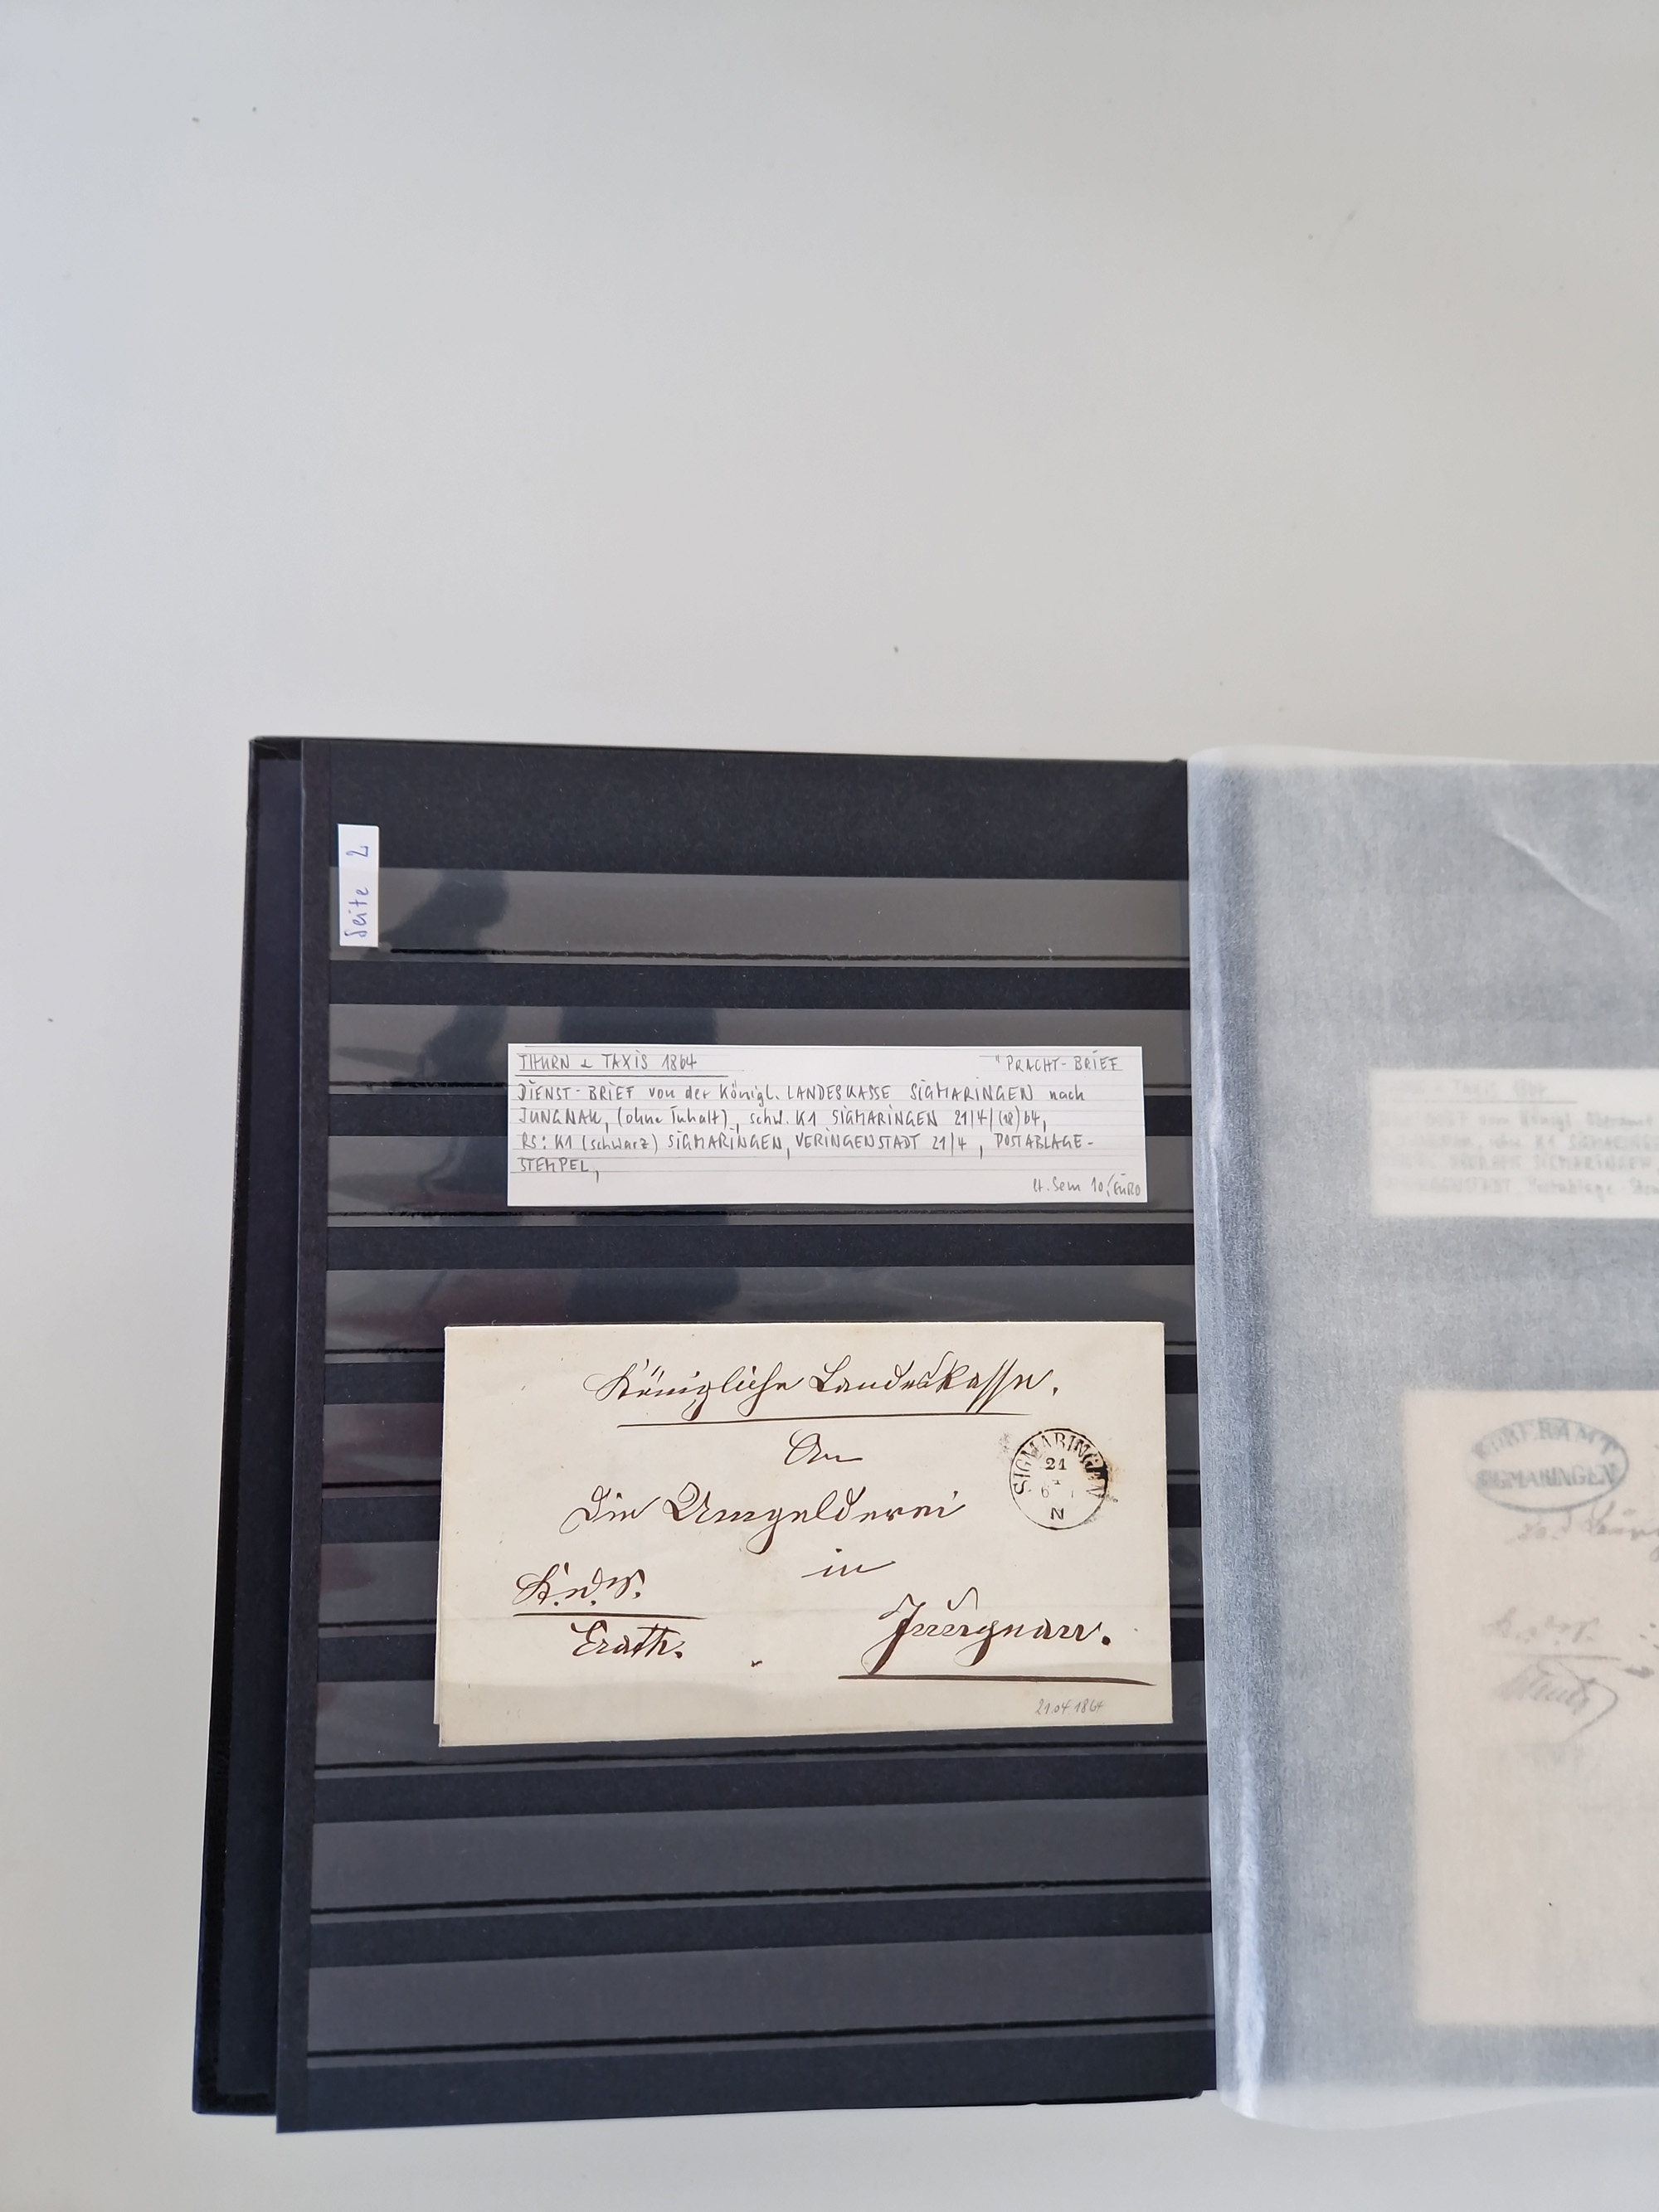 Seite 2
THURN & TAXIS 1864 "PRACHT-BRIEF
DIENST-BRIEF von der Königl. LANDESKASSE SIGMARINGEN nach
JUNGNAU, (ohne Inhalt), schw. K1 SIGMARINGEN 21/4/(18)64,
RS: K1 (schwarz) SIGMARINGEN, VERINGENSTADT 21/4, POSTABLAGE-
STEMPEL,
lt. Sem 10,- EURO
Königliche Landeskasse.
An
Die Umgelderei
in
Jungnau.
K.d.S.
Erath.
SIGMARINGEN
21
N
21.04.1864
OBERAMT
SIGMARINGEN